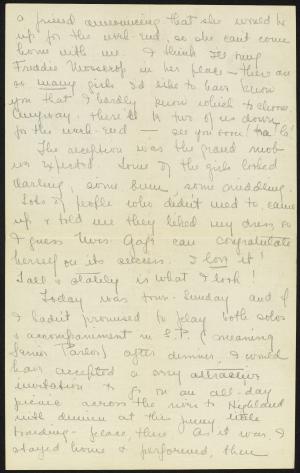 a friend announcing that she would be
up for the week-end, so she can't come
home with me. I think I'll ring
Freddie in her place - there are
so many girls I'd like to have know
you that I hardly know which to choose.
Anyway, there'll be two of us down
for the week-end - see you soon!
The reception was the grand mob
we expected. Some of the girls looked
darling, some fum, some middling.
Lots of people who didn't used to, came
up & told me they liked my dress, so
I guess Miss can congratulate
herself on its success. I love it!
Tall & stately is what I look!
Today was town-Sunday and if
I hadn't promised to play both solos
& accompaniment in S.P. (meaning
Senior Parlor) after dinner, I would
have accepted a very attractive
invitation to go on an all-day
picnic across the river to Highland
with dinner at the funny little
boarding-place, there. As it was I
stayed home & performed, then